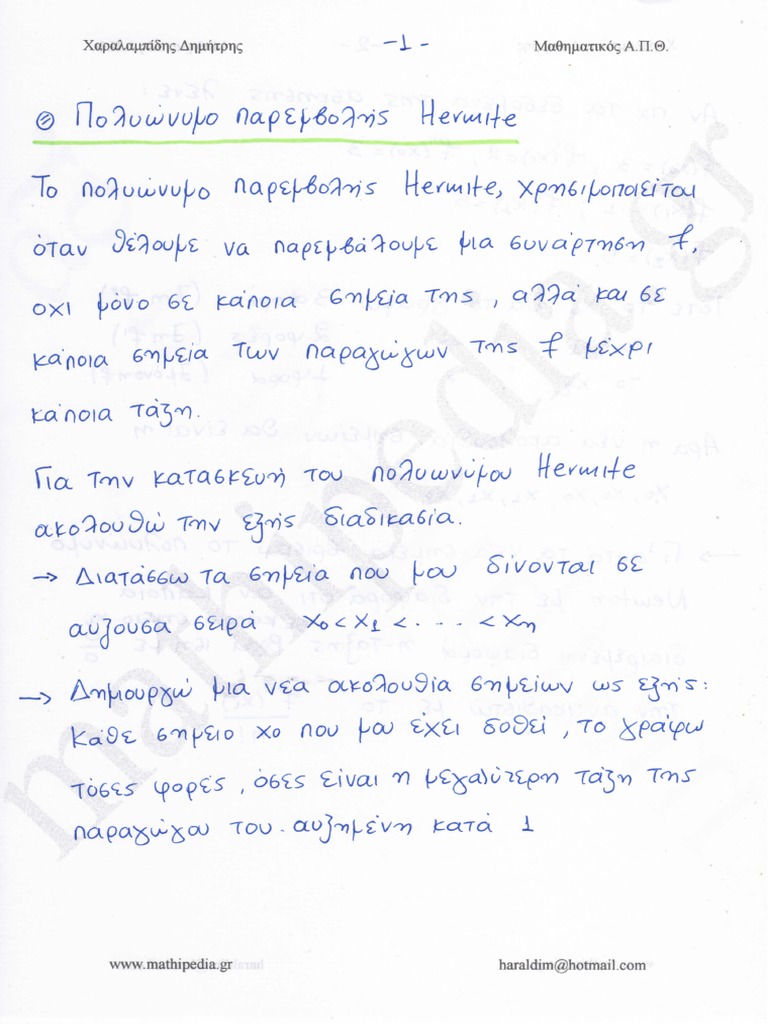 Χαραλαμπίδης Δημήτρης -1- Μαθηματικός Α.Π.Θ.
Πολυώνυμο παρεμβολής Hermite
Το πολυώνυμο παρεμβολής Hermite, χρησιμοποιείται
όταν θέλουμε να παρεμβάλουμε μια συνάρτηση f,
οχι μόνο σε κάποια σημεία της, αλλά και σε
κάποια σημεία των παραγώγων της f μέχρι
κάποια τάξη.
Για την κατασκευή του πολυωνύμου Hermite
ακολουθώ την εξής διαδικασία.
→ Διατάσσω τα σημεία που μου δίνονται σε
αυξουσα σειρά x₀ < x₁ < . . . < xη
→ Δημιουργώ μια νεα ακολουθία σημείων ως εξής:
Κάθε σημειο xο που μου έχει δοθεί, το γράφω
τόσες φορές, όσες είναι η μεγαλύτερη τάξη της
παραγώγου του αυξημένη κατά 1
mathipedia.gr
www.mathipedia.gr haraldim@hotmail.com